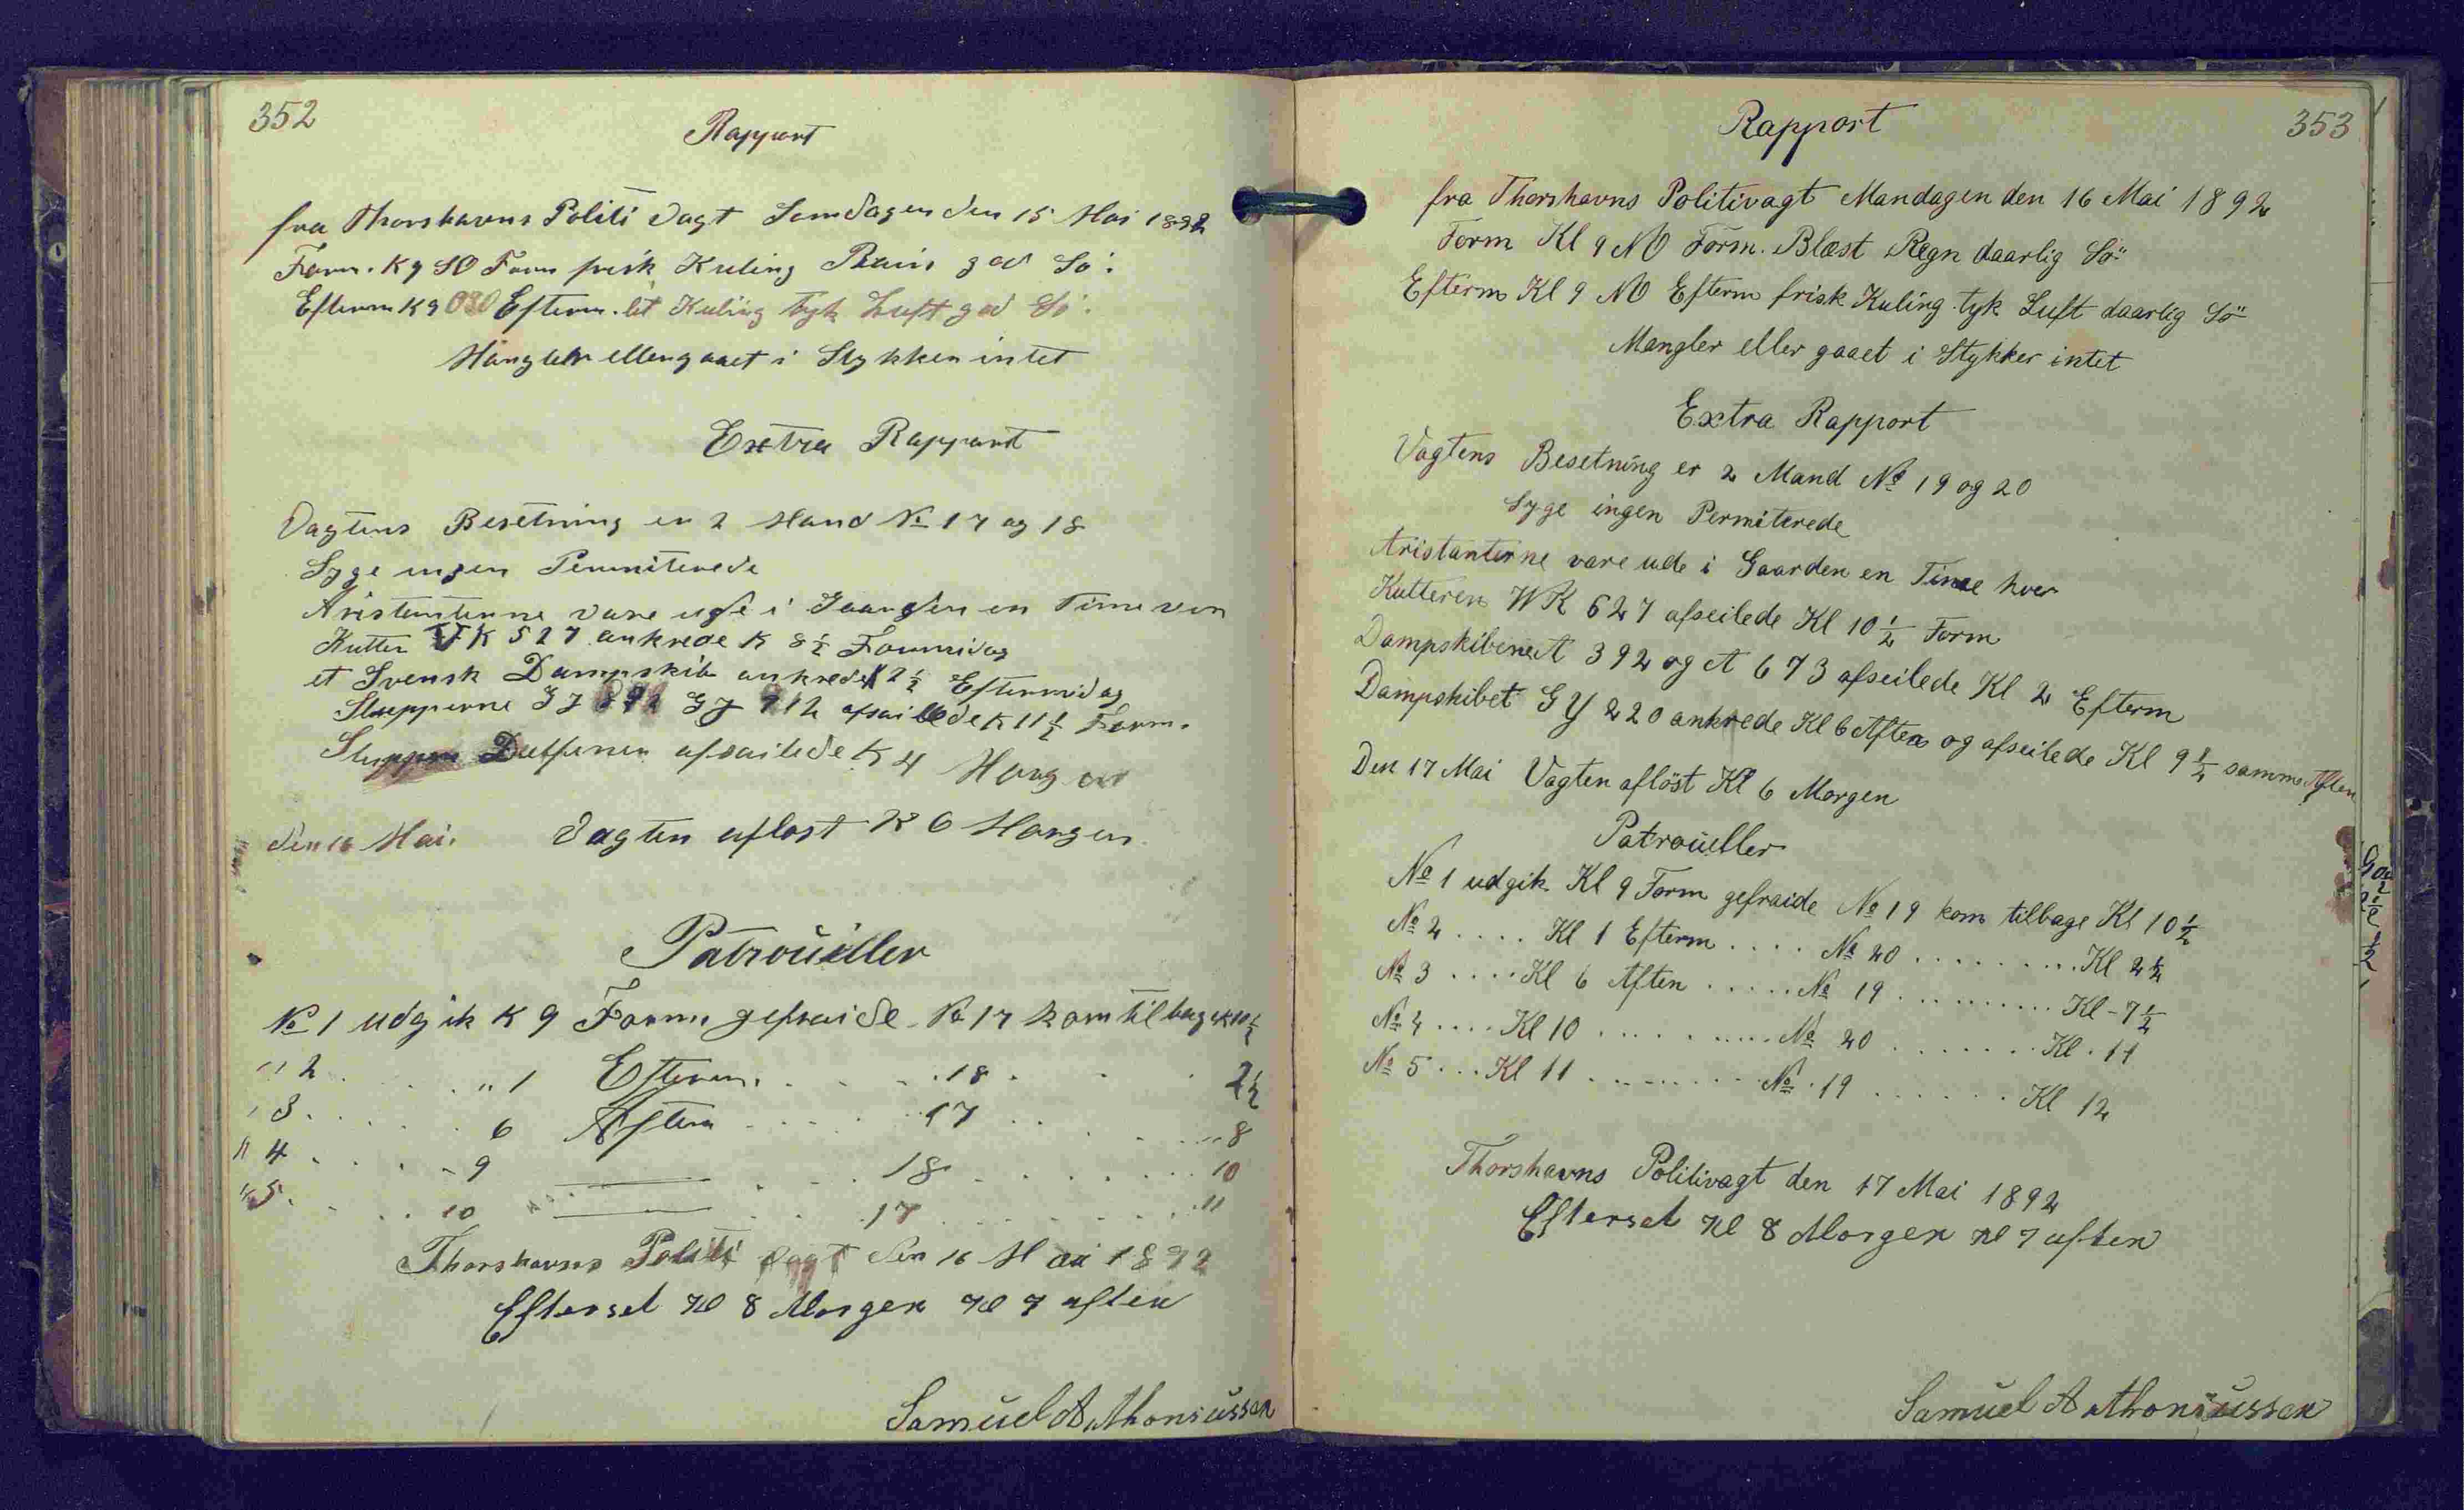 352
Rapport
fra Thorshavns Politi Vagt Søndagen den 15 Mai 1892
Form. K 9 SO Form frisk Kuling god Sö.
Efterm K 9 Efterm. lit Kuling tyk Luft god Sö.
Mangler eller gaaet i Stykker intet
Extra Rapport
Vagtens Besetning er 2 Mand No 17 og 18
Syge ingen Permiterede
Aristanterne vare ude i Gaarden en Time ver
Kutter K 527 ankrede K 8½ Formidag
et Svensk Dampskib ankrede K 2½ Eftermidag
Slupperne afseilede K 11½ Form.
Sluppen Delfinen afseilede K 4 Morgen
den 16 Mai. Vagten aflöst K 6 Morgen.
Patroüiller
No 1 udgik K 9 Form gefraide No 17 kom tilbage K 10½
" 2 . . . . " 1 Efterm. . . . . 18 . . . . 2½
" 3 . . . . . 6 Aften . . . . . 17 . . . . . 8
" 4 . . . . . 9 —— . . . 18 . . . . . . 10
" 5 . . . . . 10 —— . . . 17 . . . . . . 11
Thorshavns Politi Vagt den 16 Mai 1892
Efterset Kl 8 Morgen Kl 7 aften
Samüel Anthoniüssen
Rapport
353
fra Thorshavns Politivagt Mandagen den 16 Mai 1892
Form Kl 9 NO Form. Blæst Regn daarlig Sö
Efterm Kl 9 NO Efterm frisk Kuling tyk Luft daarlig Sö
Mangler eller gaaet i Stykker intet
Extra Rapport
Vagtens Besetning er 2 Mand No 19 og 20
Syge ingen Permiterede
Aristanterne vare ude i Gaarden en Time hver
Kutteren WK 627 afseilede Kl 10½ Form
Dampskibene A 392 og A 673 afseilede Kl 2 Efterm
Dampskibet GY 220 ankrede Kl 6 Aften og afseilede Kl 9½ samme Aften
Den 17 Mai Vagten aflöst Kl 6 Morgen
Patroüller
No 1 udgik Kl 9 Form gefraide No 19 kom tilbage Kl 10½
No 2 . . . . Kl 1 Efterm . . . . No 20 . . . . . . . . Kl 2½
No 3 . . . . Kl 6 Aften . . . . . No 19 . . . . . . . . . Kl - 7½
No 4 . . . . Kl 10 . . . . . . . . . No 20 . . . . . . . Kl . 11
No 5 . . . Kl 11 . . . . . . . . . No . 19 . . . . . . Kl 12
Thorshavns Politivagt den 17 Mai 1892
Efterset Kl 8 Morgen Kl 7 aften
Samuel Anthoniüssen